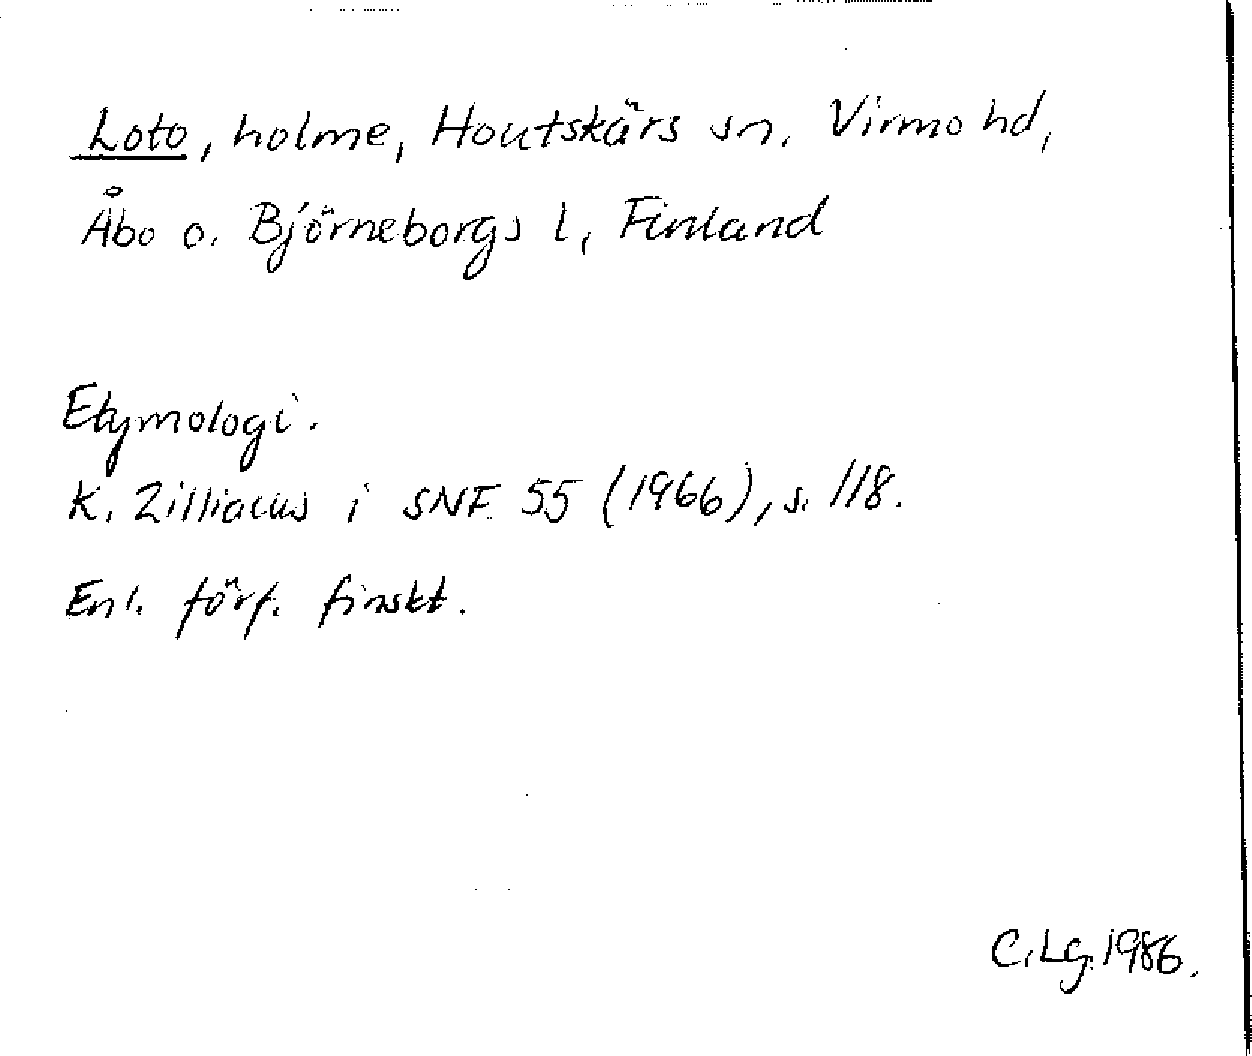 Loto, holme, Houtskärs sn, Virmo hd,
Åbo o. Björneborgs l, Finland
Etymologi.
K. Zilliacus i SNF 55 (1966), s. 118.
Enl. förf. finskt.
C. Lg. 1986.